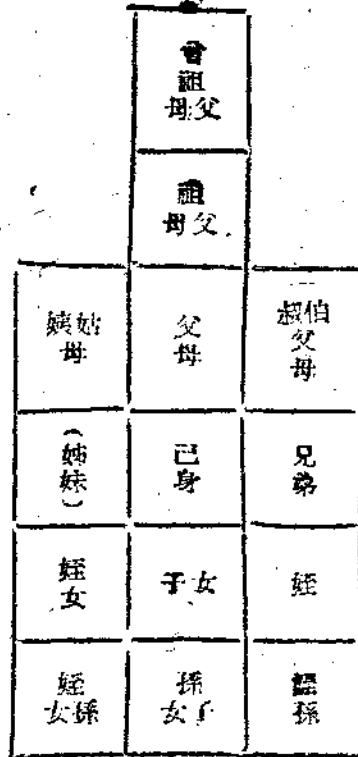 曾祖父母
祖父母
伯叔父母
父母
姑姨母
兄弟
己身
(姊妹)
姪
女子
姪女
姪孫
孫子女
姪孫女